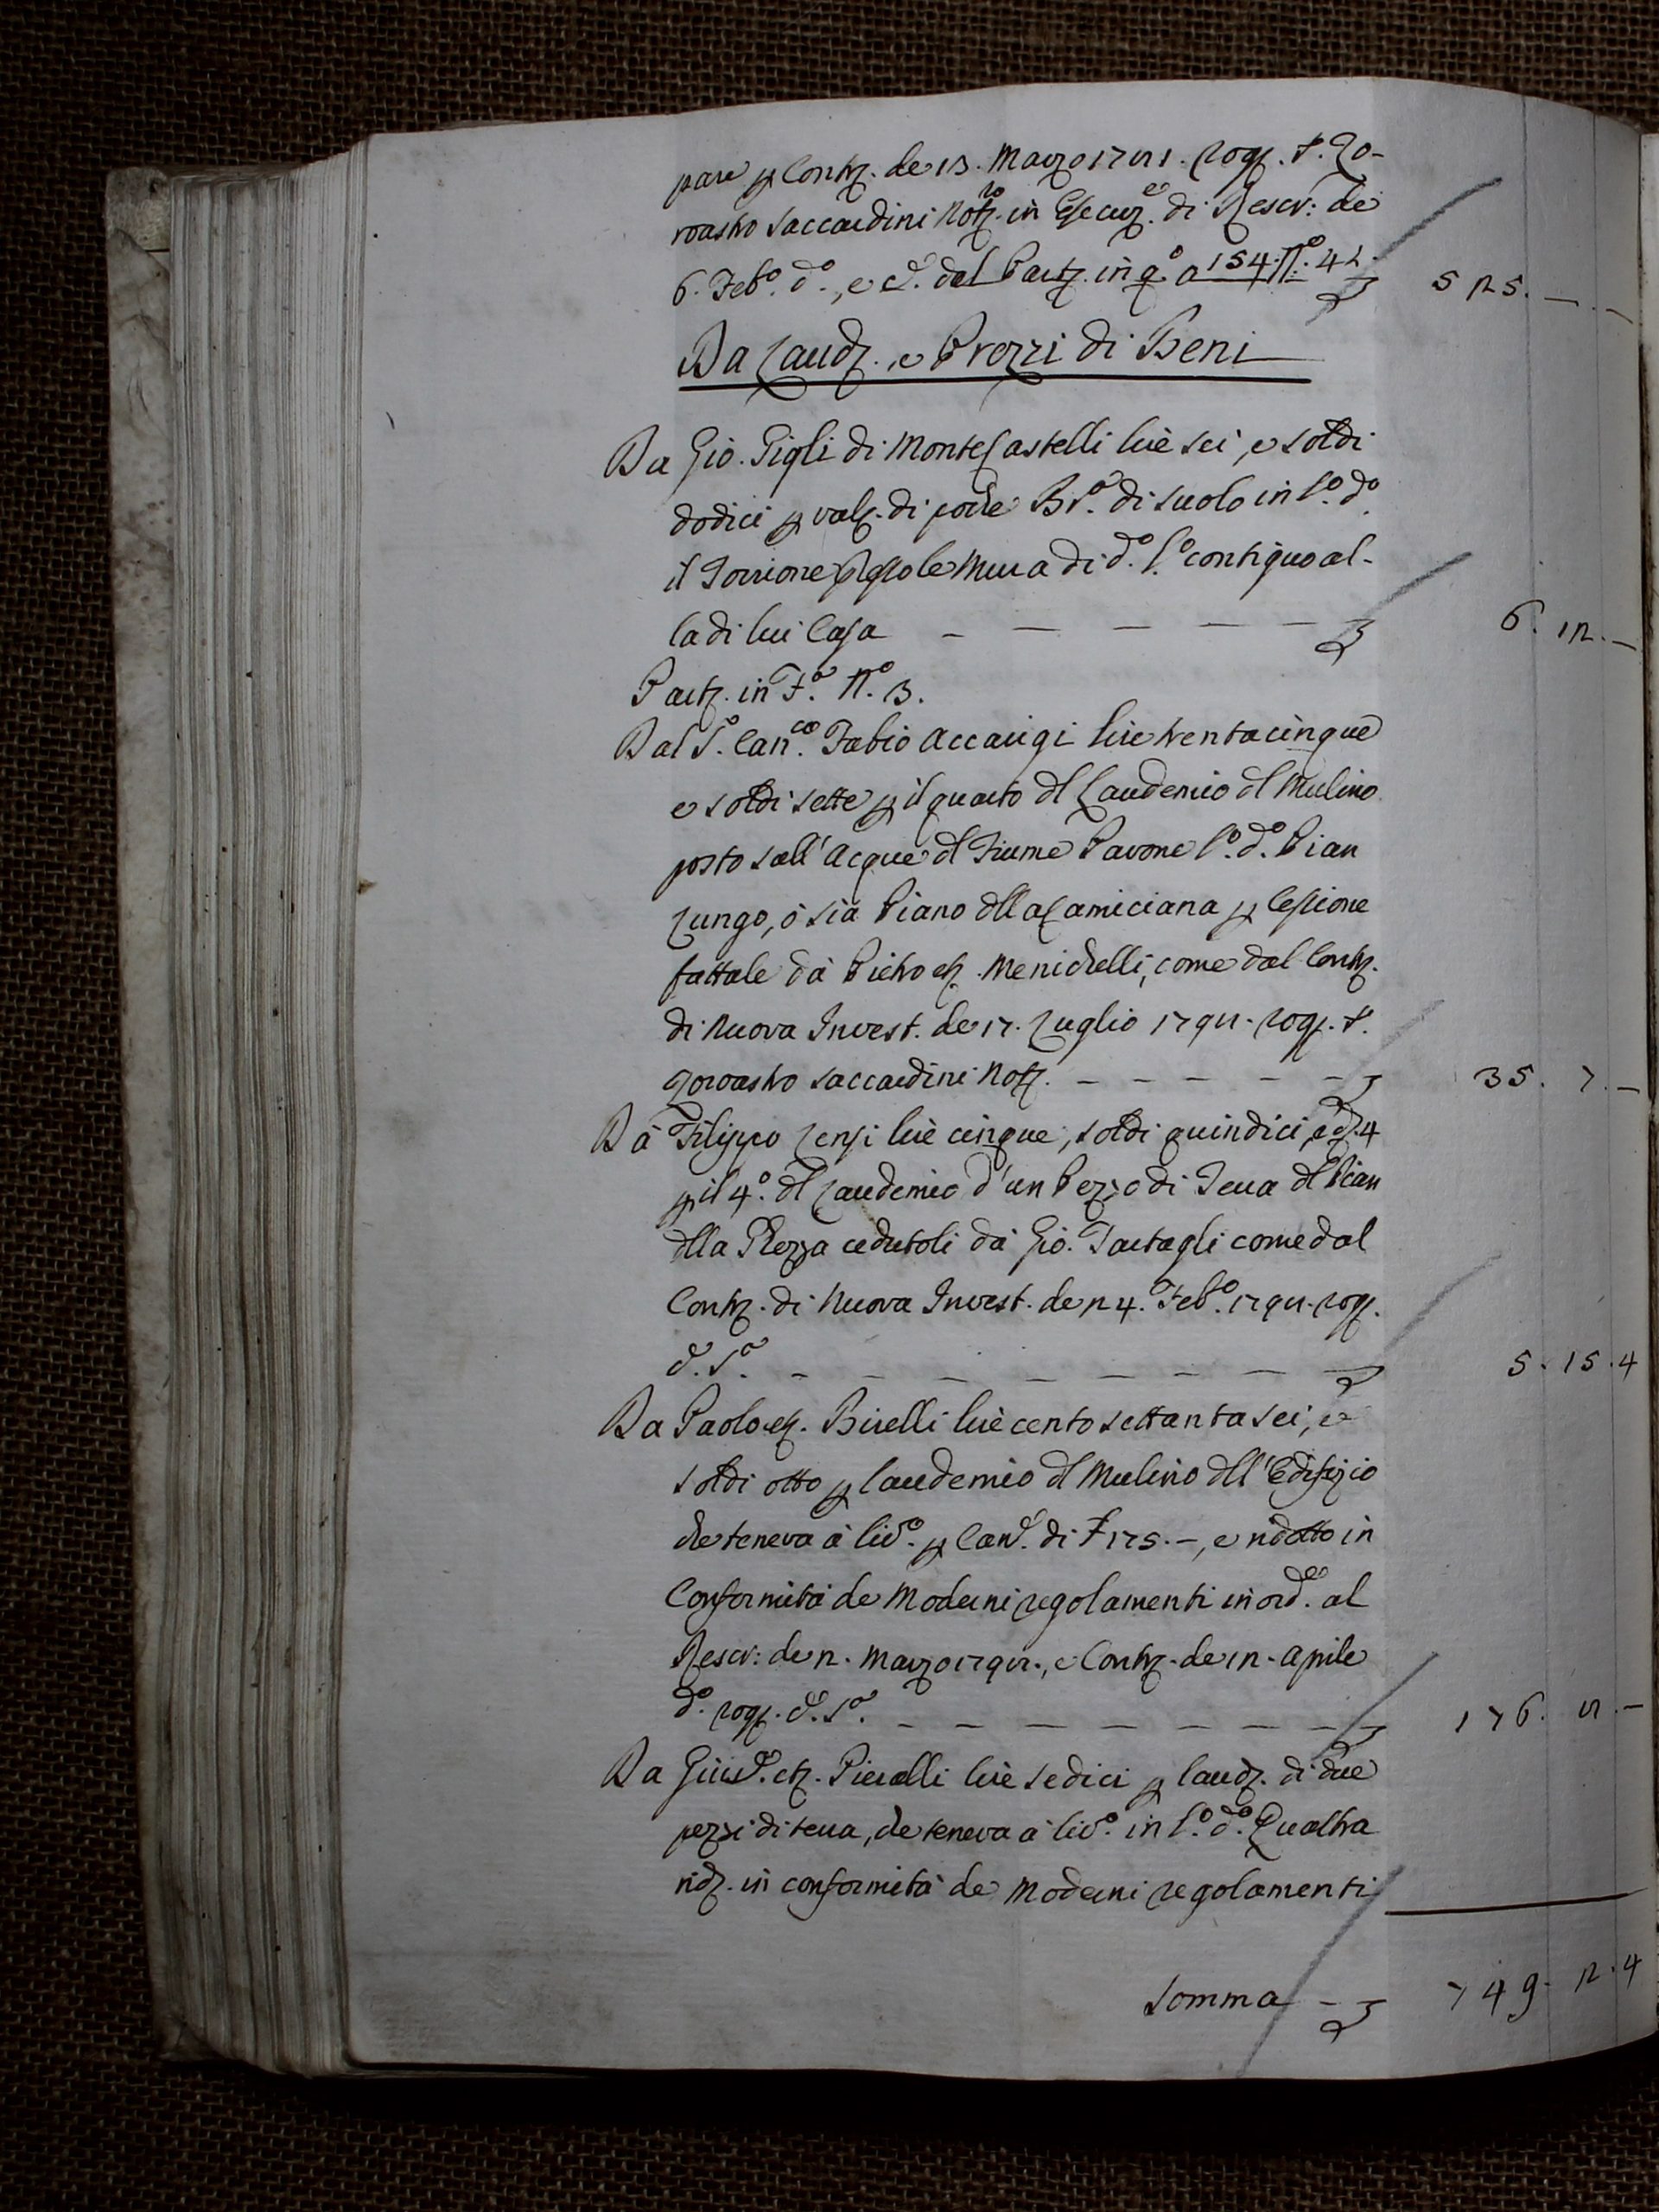 pare p Contr. de 13. Marzo 1781. rog. S. Zo-
roastro Saccardini Not.ro in Esecuz.e di Rescr: de
6. Feb.o d.o, e c.e dal Partz. in q.o a 154. N.o 42. 525. — . —
Da Laudz. e Prezzi di Beni
Da Gio. Gigli di MonteCastelli lire sei, e soldi
dodici p valz. di poche B.a di suolo in l.o d.o
il Torrione presso le Mura di d.o l.o contiguo al-
la di lui Casa — — — — — — 6. 12. —
Partz. in F.a N.o 3.
Dal S. Can.co Fabio Accarigi lire trentacinque
e soldi sette p il quarto dl Laudemio dl Mulino
posto sull'Acque dl Fiume Pavone l.o d.o Pian
Lungo, ò sia Piano dlla Camiciana p Cessione
fattale dà Pietro etz. Menichelli, come dal Contr.
di Nuova Invest. de 17. Luglio 1792. rog. S.
Zoroastro Saccardini Notz. — — — — — — 35. 7. —
Dà Filippo Lensi lire cinque, soldi quindici, e dz. 4
p il 4.o dl Laudemio d'un Pezzo di Terra dl Pian
dlla Rezza cedutoli dà Gio. Tartagli come dal
Contr. di Nuova Invest. de 24. Feb.o 1792. rog.
d. S.a — — — — — — — — 5. 15. 4
Da Paolo etz. Birelli lire cento settanta sei, e
soldi otto p laudemio dl Mulino dll'Edifizio
che teneva à liv.o p Can.e di £ 175. —, e ridotto in
Conformità de Moderni regolamenti in ord.e al
Rescr: de 2. Marzo 1792., e Contr. de 12. Aprile
d.o rog. d. S.a — — — — — — — 176. 8. —
Da Gius.e etz. Pieralli lire sedici p laudz. di due
pezzi di terra, che teneva à liv.o in l.o d.o Qualtra
ridz. in conformità de Moderni regolamenti
Somma — 749. 2. 4